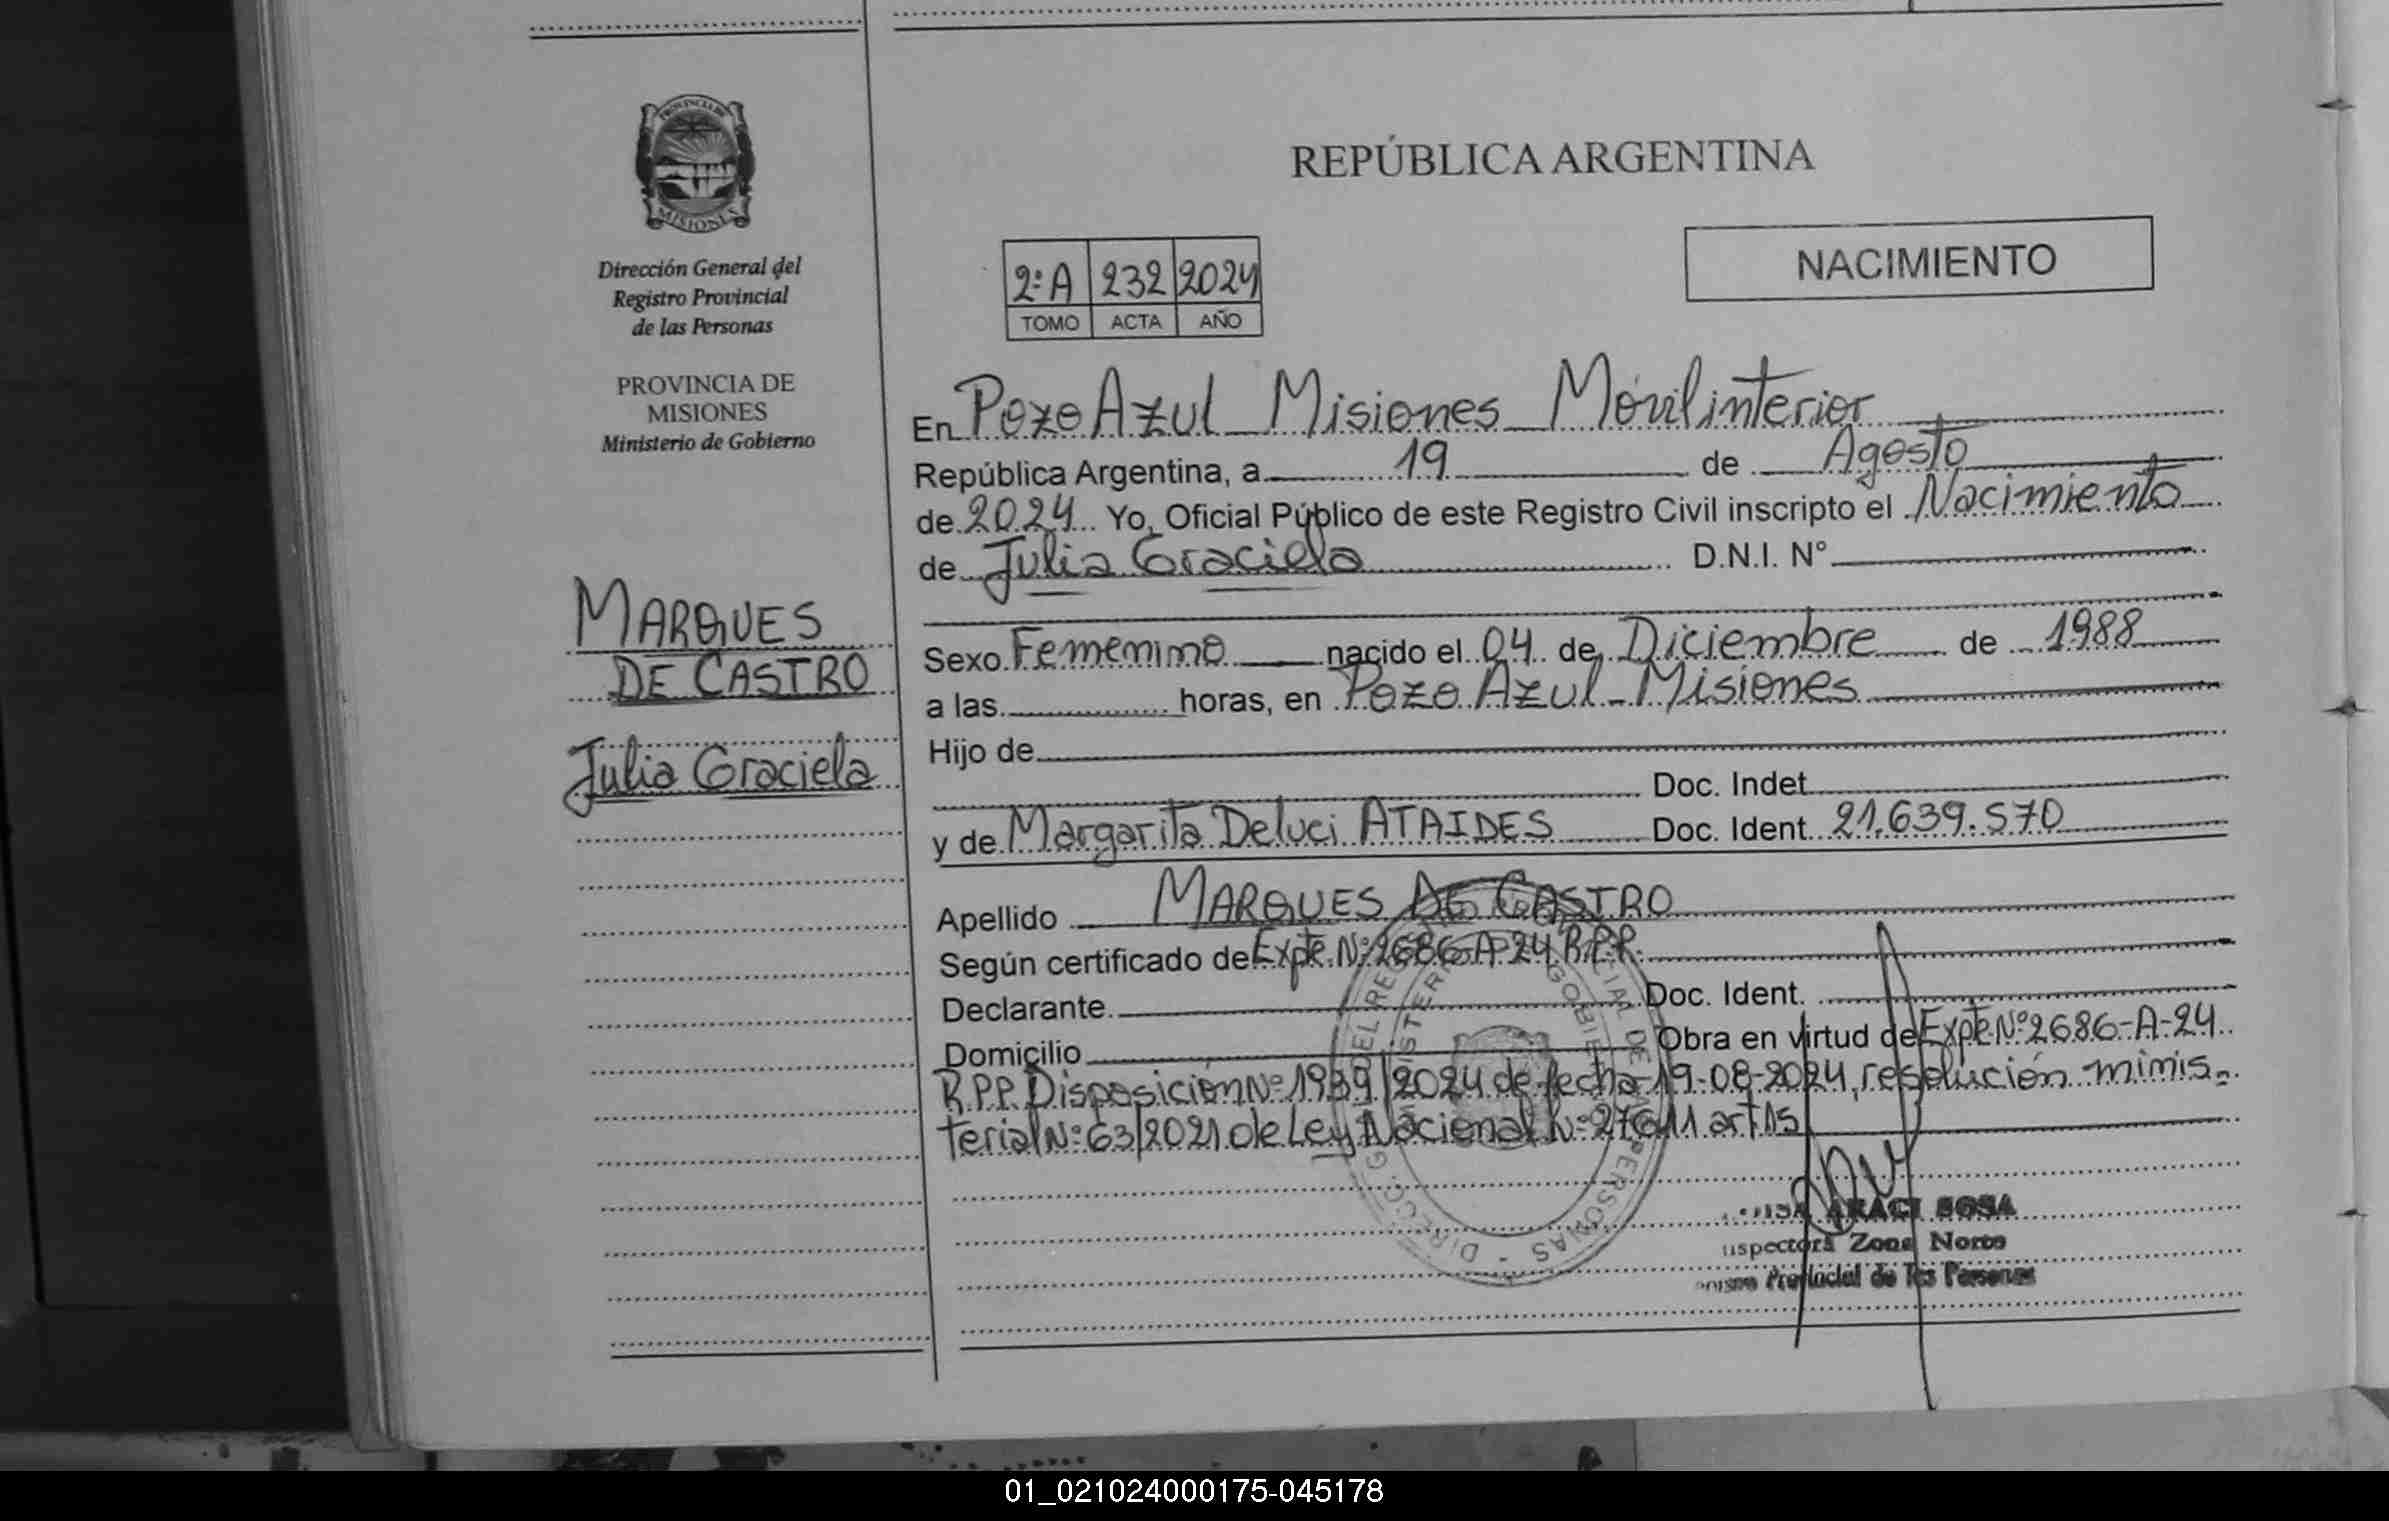 PROVINCIA DE
MISIONES
Dirección General del
Registro Provincial
de las Personas
PROVINCIA DE
MISIONES
Ministerio de Gobierno
MARQUES
DE CASTRO
Julia Graciela
REPÚBLICA ARGENTINA
NACIMIENTO
2:A 232 2024
TOMO ACTA AÑO
En Pozo Azul Misiones Móvil interior
República Argentina, a 19 de Agosto
de 2024 Yo, Oficial Público de este Registro Civil inscripto el Nacimiento
de Julia Graciela D.N.I. N°
Sexo Femenino nacido el 04 de Diciembre de 1988
a las horas, en Pozo Azul - Misiones
Hijo de
Doc. Indet
y de Margarita Deluci ATAIDES Doc. Ident. 21.639.570
Apellido MARQUES DE CASTRO
Según certificado de Expte. Nº 2686-A-24 R.P.P.
Declarante Doc. Ident.
Domicilio Obra en virtud de Expte Nº 2686-A-24
R.P.P. Disposición Nº 1939/2024 de fecha 19-08-2024, resolución minis-
terial Nº 63/2021 de Ley Nacional Nº 27611 art 15
ARACI SOSA
Zona Norte
Provincial de las Personas
01_021024000175-045178